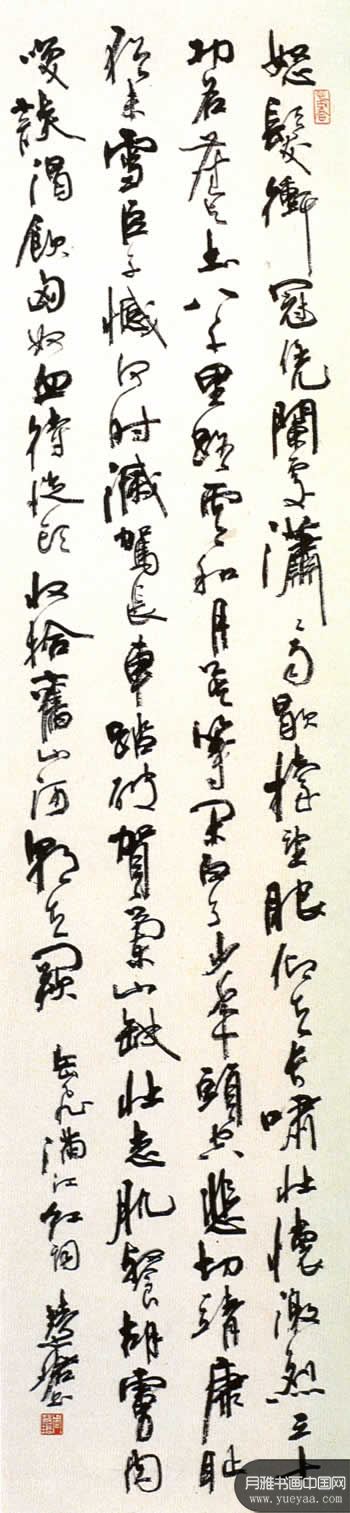 怒髮衝冠凭闌處瀟々雨歇擡望眼仰天長嘯壯懷激烈三十
功名塵與土八千里路雲和月莫等閑白了少年頭空悲切靖康恥
猶未雪臣子憾何时滅駕長車踏破賀蘭山缺壯志飢餐胡虜肉
笑談渴飲匈奴血待從頭收拾舊山河朝天闕
岳飛滿江紅詞
月雅书画中国网
www.yueyaa.com